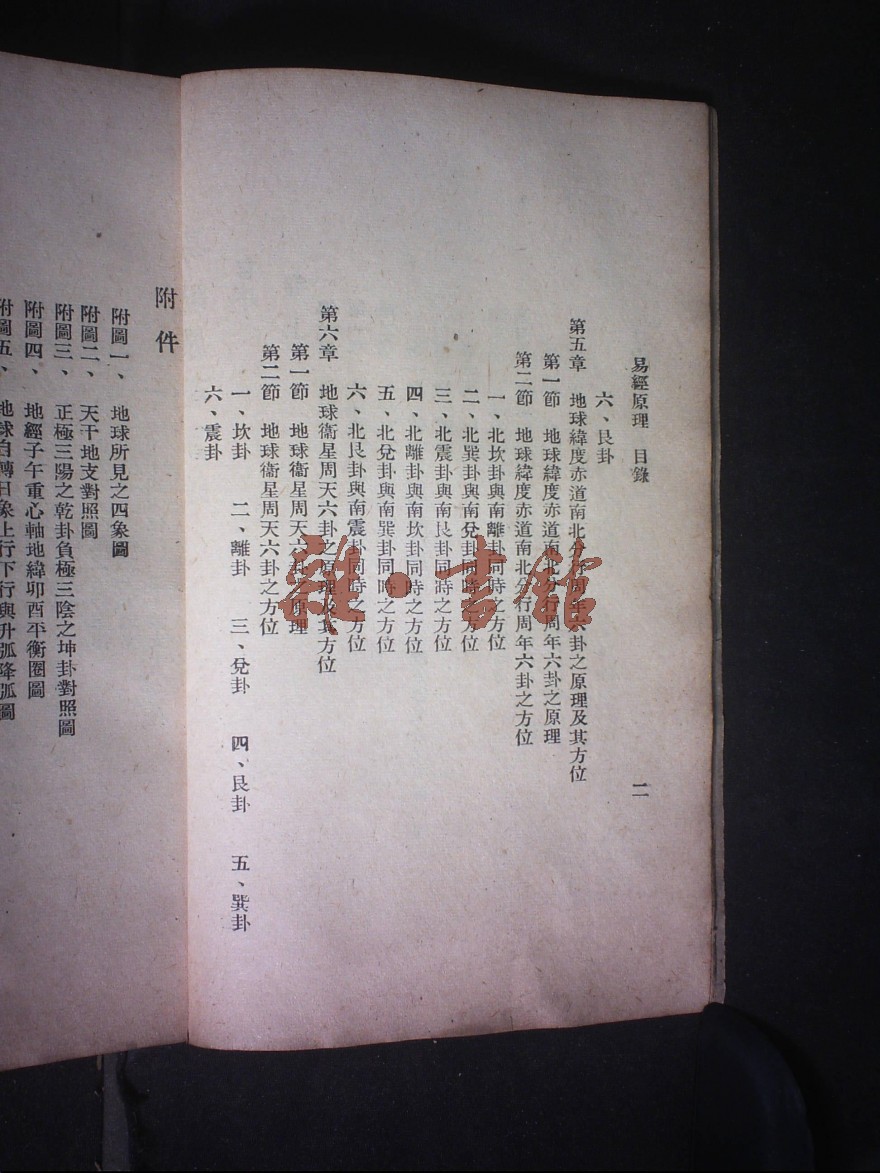 易經原理 目錄 二
六、艮卦
第五章 地球緯度赤道南北分行周年六卦之原理及其方位
第一節 地球緯度赤道南北分行周年六卦之原理
第二節 地球緯度赤道南北分行周年六卦之方位
一、北坎卦與南離卦同時之方位
二、北巽卦與南兌卦同時之方位
三、北震卦與南艮卦同時之方位
四、北離卦與南坎卦同時之方位
五、北兌卦與南巽卦同時之方位
六、北艮卦與南震卦同時之方位
第六章 地球衞星周天六卦之原理及其方位
第一節 地球衞星周天六卦之原理
第二節 地球衞星周天六卦之方位
一、坎卦 二、離卦 三、兌卦 四、艮卦 五、巽卦
六、震卦
附件
附圖一、地球所見之四象圖
附圖二、天干地支對照圖
附圖三、正極三陽之乾卦負極三陰之坤卦對照圖
附圖四、地經子午重心軸地緯卯酉平衡圈圖
附圖五、地球自轉日象上行下行與升弧降弧圖
雜·書館